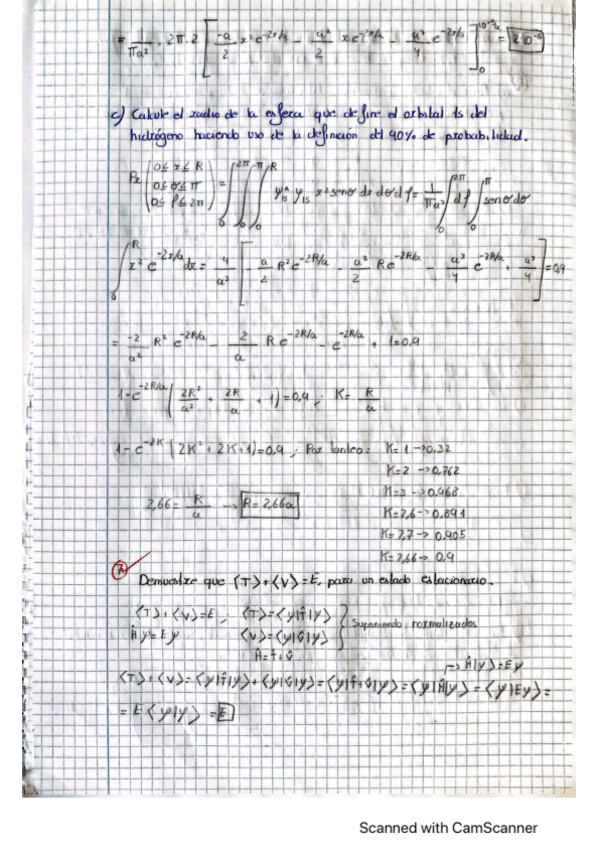 = 1/πa³ · 2π · 2 [ -a/2 x² e^-2x/a - a²/2 x e^-2x/a - a³/4 e^-2x/a ]₀ = 2·10
c) Calcule el radio de la esfera que define el orbital 1s del
hidrógeno haciendo uso de la definición del 90% de probabilidad.
Px ( 0≤x≤R 0≤θ≤π 0≤φ≤2π ) = ∫₀^2π ∫₀^π ∫₀^R ψ*₁s ψ₁s x² senθ dx dθ dφ = 1/πa³ ∫₀^2π dφ ∫₀^π senθ dθ
∫₀^R x² e^-2x/a dx = 4/a³ [ -a/2 R² e^-2R/a - a²/2 R e^-2R/a - a³/4 e^-2R/a + a³/4 ] = 0,9
= -2/a² R² e^-2R/a - 2/a R e^-2R/a - e^-2R/a + 1 = 0,9
1 - e^-2R/a ( 2R²/a² + 2R/a + 1 ) = 0,9 ; K = R/a
1 - e^-2K ( 2K² + 2K + 1 ) = 0,9 ; Por tanteo: K=1 → 0,32
K=2 → 0,762
K=3 → 0,968
2,66 = R/a → R = 2,66a K=2,6 → 0,891
K=2,7 → 0,905
K=2,66 → 0,9
7. Demuestre que ⟨T⟩+⟨V⟩=E, para un estado estacionario.
⟨T⟩+⟨V⟩=E ; ⟨T⟩=⟨ψ|T̂|ψ⟩
Ĥψ=Eψ ⟨V⟩=⟨ψ|V̂|ψ⟩ } Suponiendo normalizados
Ĥ=T̂+V̂
→ Ĥ|ψ⟩=Eψ
⟨T⟩+⟨V⟩=⟨ψ|T̂|ψ⟩+⟨ψ|V̂|ψ⟩=⟨ψ|T̂+V̂|ψ⟩=⟨ψ|Ĥ|ψ⟩=⟨ψ|Eψ⟩=
= E⟨ψ|ψ⟩ = E
Scanned with CamScanner